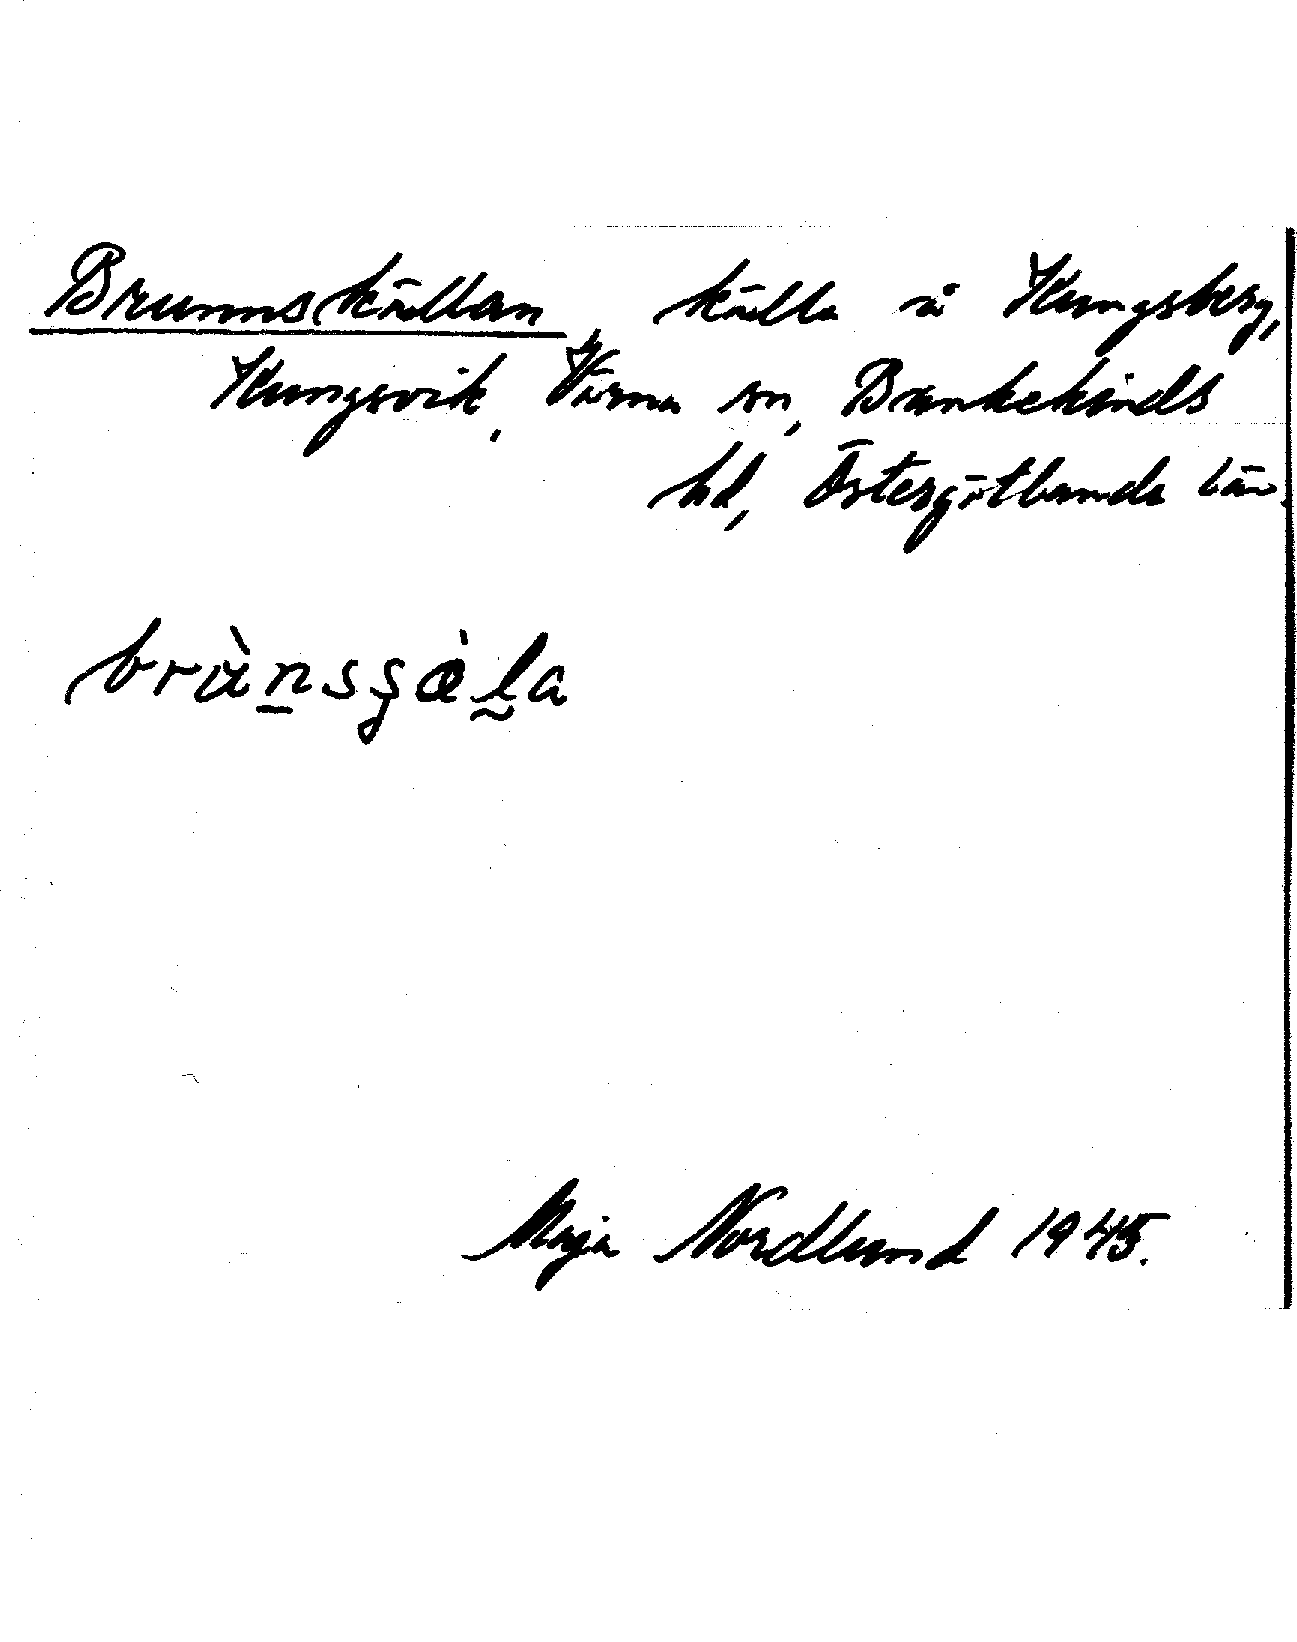 Brunnskällan, källa å Kungsberg,
Kungsvik, Värna sn, Bankekinds
hd, Östergötlands län.
brùnsʂæ̀la
Maja Nordlund 1945.